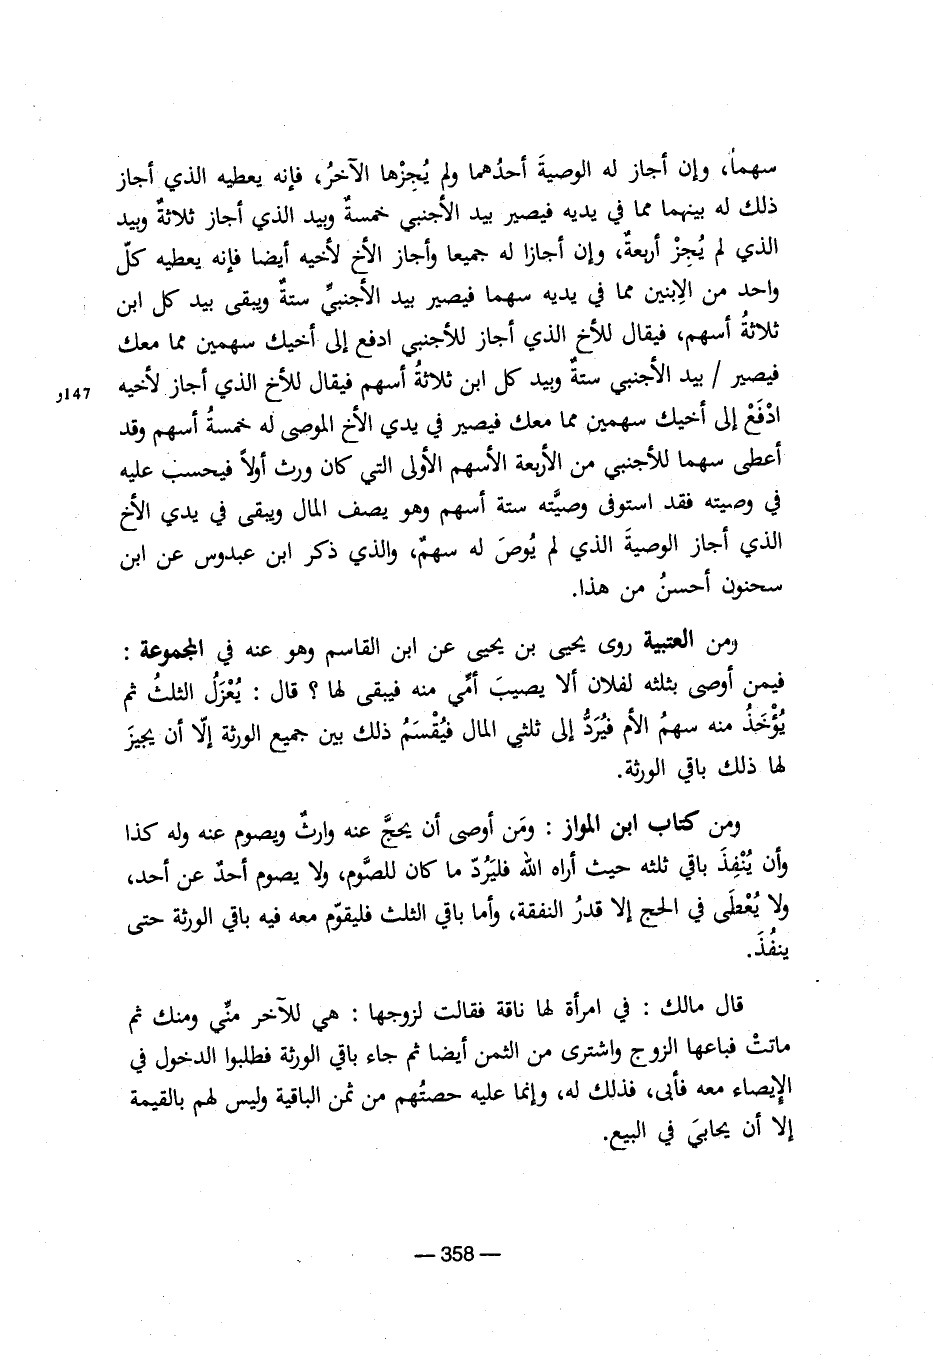 سهماً، وإن أجاز له الوصيةَ أحدُهما ولم يُجِزْها الآخرُ، فإنه يعطيه الذي أجاز
ذلك له بينهما مما في يديه فيصير بيد الأجنبي خمسةٌ وبيد الذي أجاز ثلاثةٌ وبيد
الذي لم يُجِزْ أربعةٌ، وإن أجازا له جميعا وأجاز الأخ لأخيه أيضا فإنه يعطيه كلّ
واحد من الإبنين مما في يديه سهما فيصير بيد الأجنبيِّ ستةٌ ويبقى بيد كل ابن
ثلاثةُ أسهم، فيقال للأخ الذي أجاز للأجنبي ادفع إلى أخيك سهمين مما معك
فيصير / بيد الأجنبي ستةٌ وبيد كل ابن ثلاثةُ أسهم فيقال للأخ الذي أجاز لأخيه
147و
ادْفَعْ إلى أخيك سهمين مما معك فيصير في يدي الأخ الموصى له خمسةُ أسهم وقد
أعطى سهما للأجنبي من الأربعة الأسهم الأولى التي كان ورث أولاً فيحسب عليه
في وصيته فقد استوفى وصيَّته ستة أسهم وهو يصف المال ويبقى في يدي الأخ
الذي أجاز الوصيةَ الذي لم يُوصَ له سهمٌ، والذي ذكر ابن عبدوس عن ابن
سحنون أحسنُ من هذا.
ومن العتبية روى يحيى بن يحيى عن ابن القاسم وهو عنه في المجموعة :
فيمن أوصى بثلثه لفلان ألا يصيبَ أمِّي منه فيبقى لها ؟ قال : يُعْزَلُ الثلثُ ثم
يُؤْخَذُ منه سهمُ الأم فيُرَدُّ إلى ثلثي المال فيُقْسَمُ ذلك بين جميع الورثة إلّا أن يجيزَ
لها ذلك باقي الورثة.
ومن كتاب ابن المواز : ومَن أوصى أن يحجَّ عنه وارثٌ ويصوم عنه وله كذا
وأن يُنْفِذَ باقي ثلثه حيث أراه الله فليَرُدّ ما كان للصَّوم، ولا يصوم أحدٌ عن أحد،
ولا يُعْطَى في الحج إلا قدرُ النفقة، وأما باقي الثلث فليقوّم معه فيه باقي الورثة حتى
ينفُذَ.
قال مالك : في امرأة لها ناقة فقالت لزوجها : هي للآخر منِّي ومنك ثم
ماتتْ فباعها الزوج واشترى من الثمن أيضا ثم جاء باقي الورثة فطلبوا الدخول في
الإيصاء معه فأبى، فذلك له، وإنما عليه حصتُهم من ثمن الباقية وليس لهم بالقيمة
إلا أن يحابيَ في البيع.
— 358 —